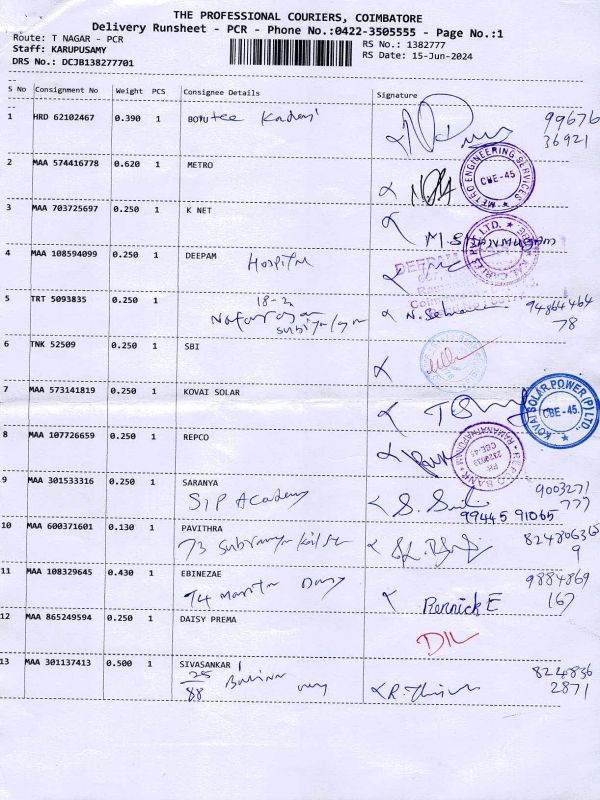 THE PROFESSIONAL COURIERS, COIMBATORE
Delivery Runsheet - PCR - Phone No.:0422-3505555 - Page No.:1
Route: T NAGAR - PCR
RS No.: 1382777
Staff: KARUPUSAMY
RS Date: 15-Jun-2024
DRS No.: DCJB138277701
S No Consignment No Weight PCS Consignee Details Signature
1 HRD 62102467 0.390 1 99676
36921
2 MAA 574416778 0.620 1 METRO
METEO ENGINEERING SERVICES CBE-45
3 MAA 703725697 0.250 1 K NET
M. SHANMUGAM
4 MAA 108594099 0.250 1 DEEPAM Hospital
DEEPAM
5 TRT 5093835 0.250 1 N. 94864464
78
6 TNK 52509 0.250 1 SBI
7 MAA 573141819 0.250 1 KOVAI SOLAR
KOVAI SOLAR POWER (P) LTD. CBE-45.
8 MAA 107726659 0.250 1 REPCO
REPCO BANK RAMANATHAPURAM CBE-45
9 MAA 301533316 0.250 1 SARANYA
SIP Academy 9003271
777
99445 91065
10 MAA 600371601 0.130 1 PAVITHRA
73 824806365
9
11 MAA 108329645 0.430 1 EBINEZAE
T4 Rennick E 9884869
167
12 MAA 865249594 0.250 1 DAISY PREMA
DIL
13 MAA 301137413 0.500 1 SIVASANKAR
25
88 824836
2871